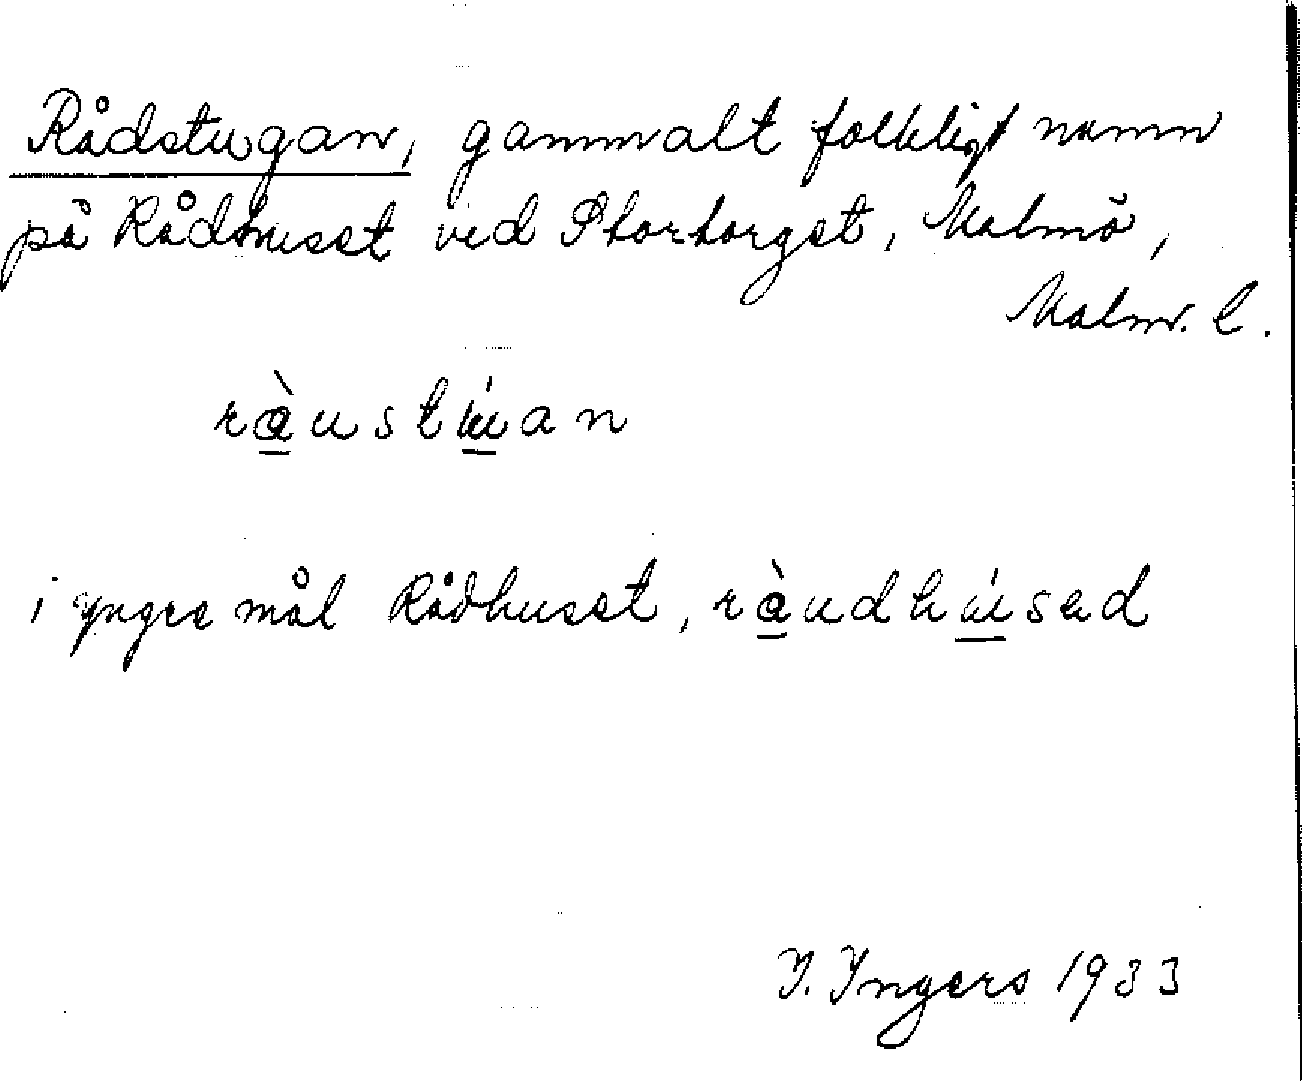 Rådstugan, gammalt folkligt namn
på Rådhuset ved Stortorget, Malmö,
Malm. l.
ràustúan
i yngre mål Rådhuset, ràudhúsed
I. Ingers 1933